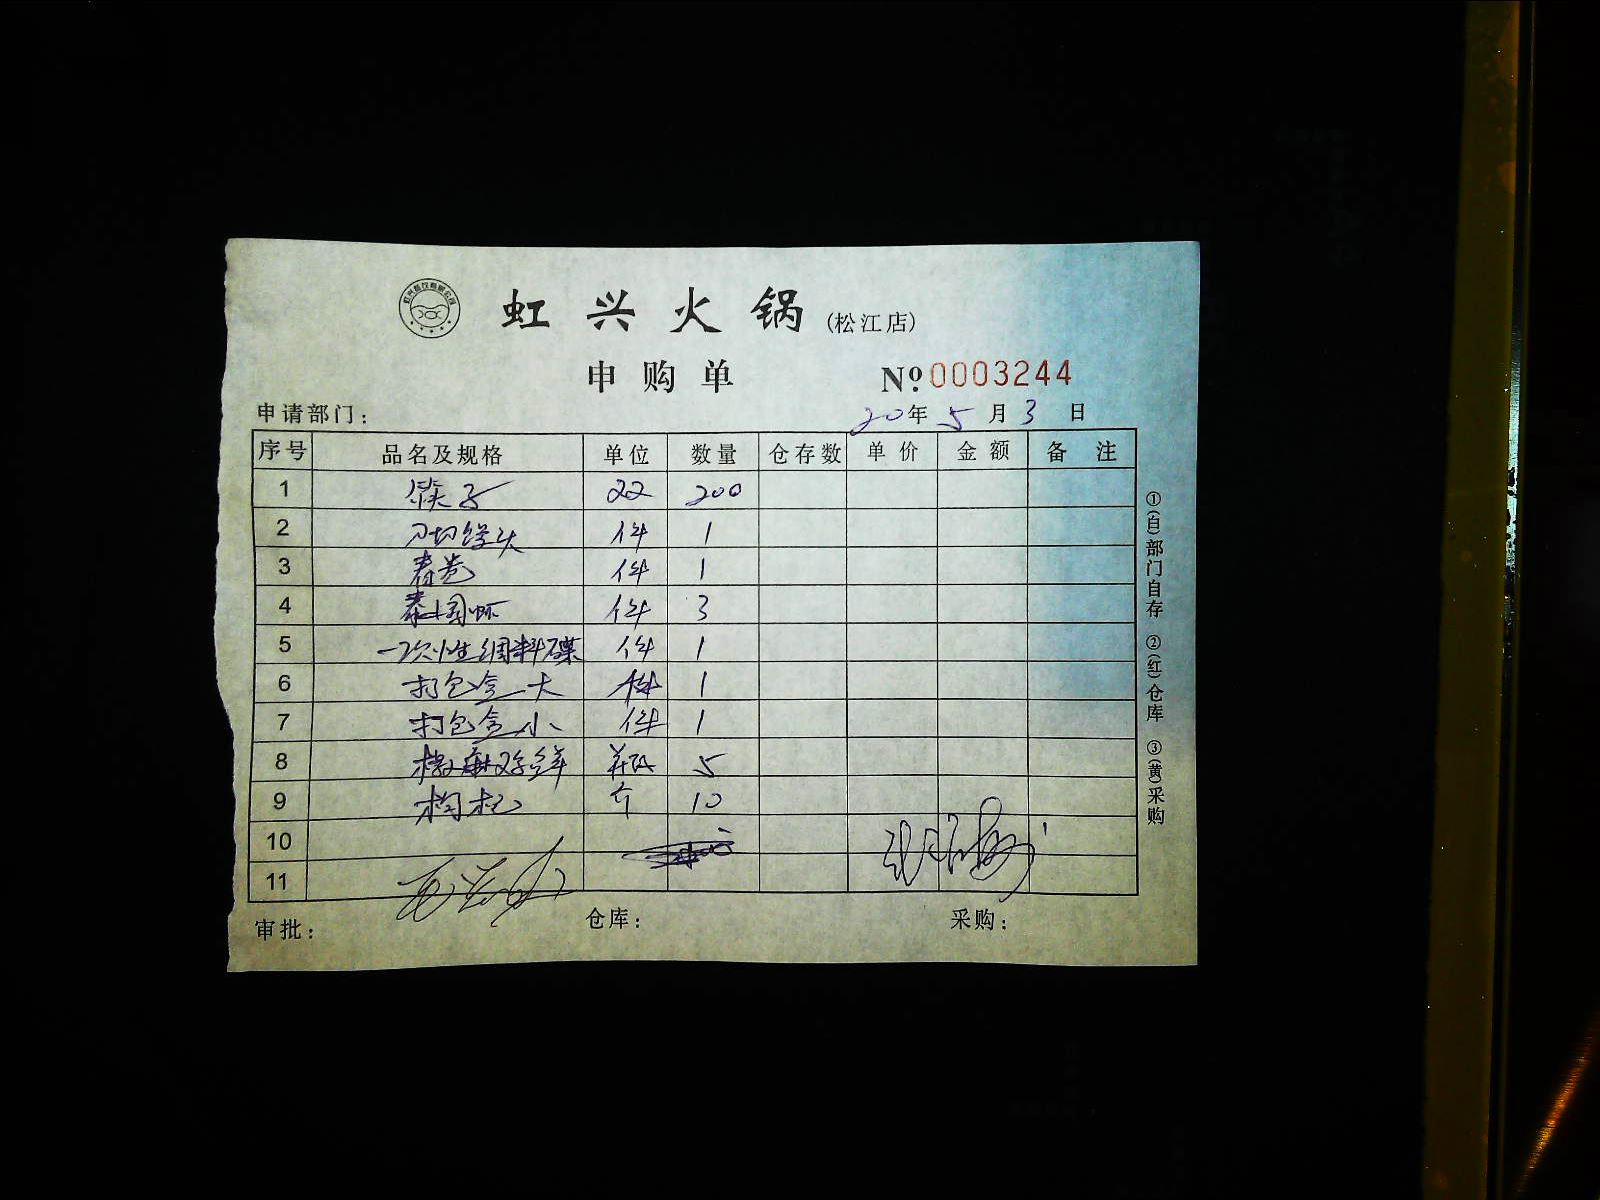 虹兴火锅(松江店)
申购单 №0003244
申请部门: 20年5月3日
序号 品名及规格 单位 数量 仓存数 单价 金额 备注
1 筷子 双 200
2 刀切馒头 件 1
3 春卷 件 1
4 泰国虾 件 3
5 一次性调料碟 件 1
6 打包盒大 件 1
7 打包盒小 件 1
8 椒麻鸡鲜 瓶 5
9 枸杞 斤 10
10
11
审批: 仓库: 采购:
①(白)部门自存 ②(红)仓库 ③(黄)采购